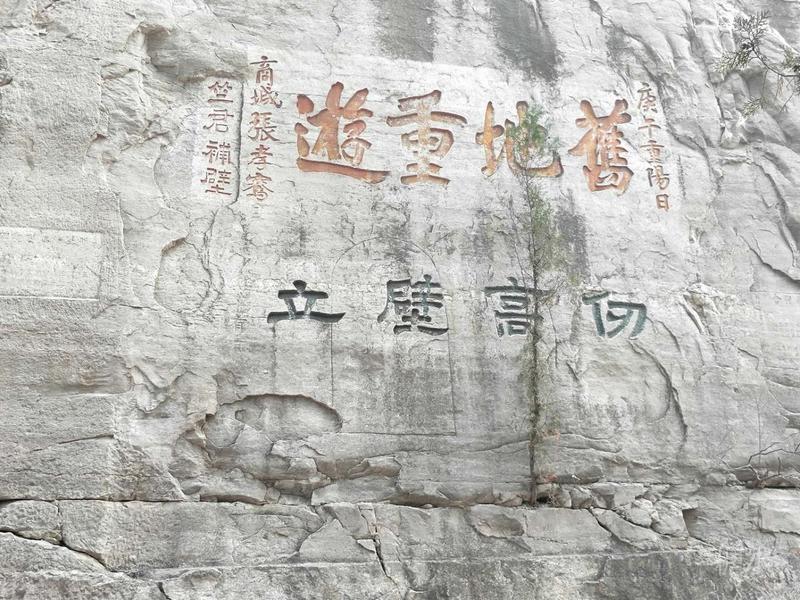 庚午重陽日
舊地重遊
商城張孝騫
竺君補壁
仞高壁立